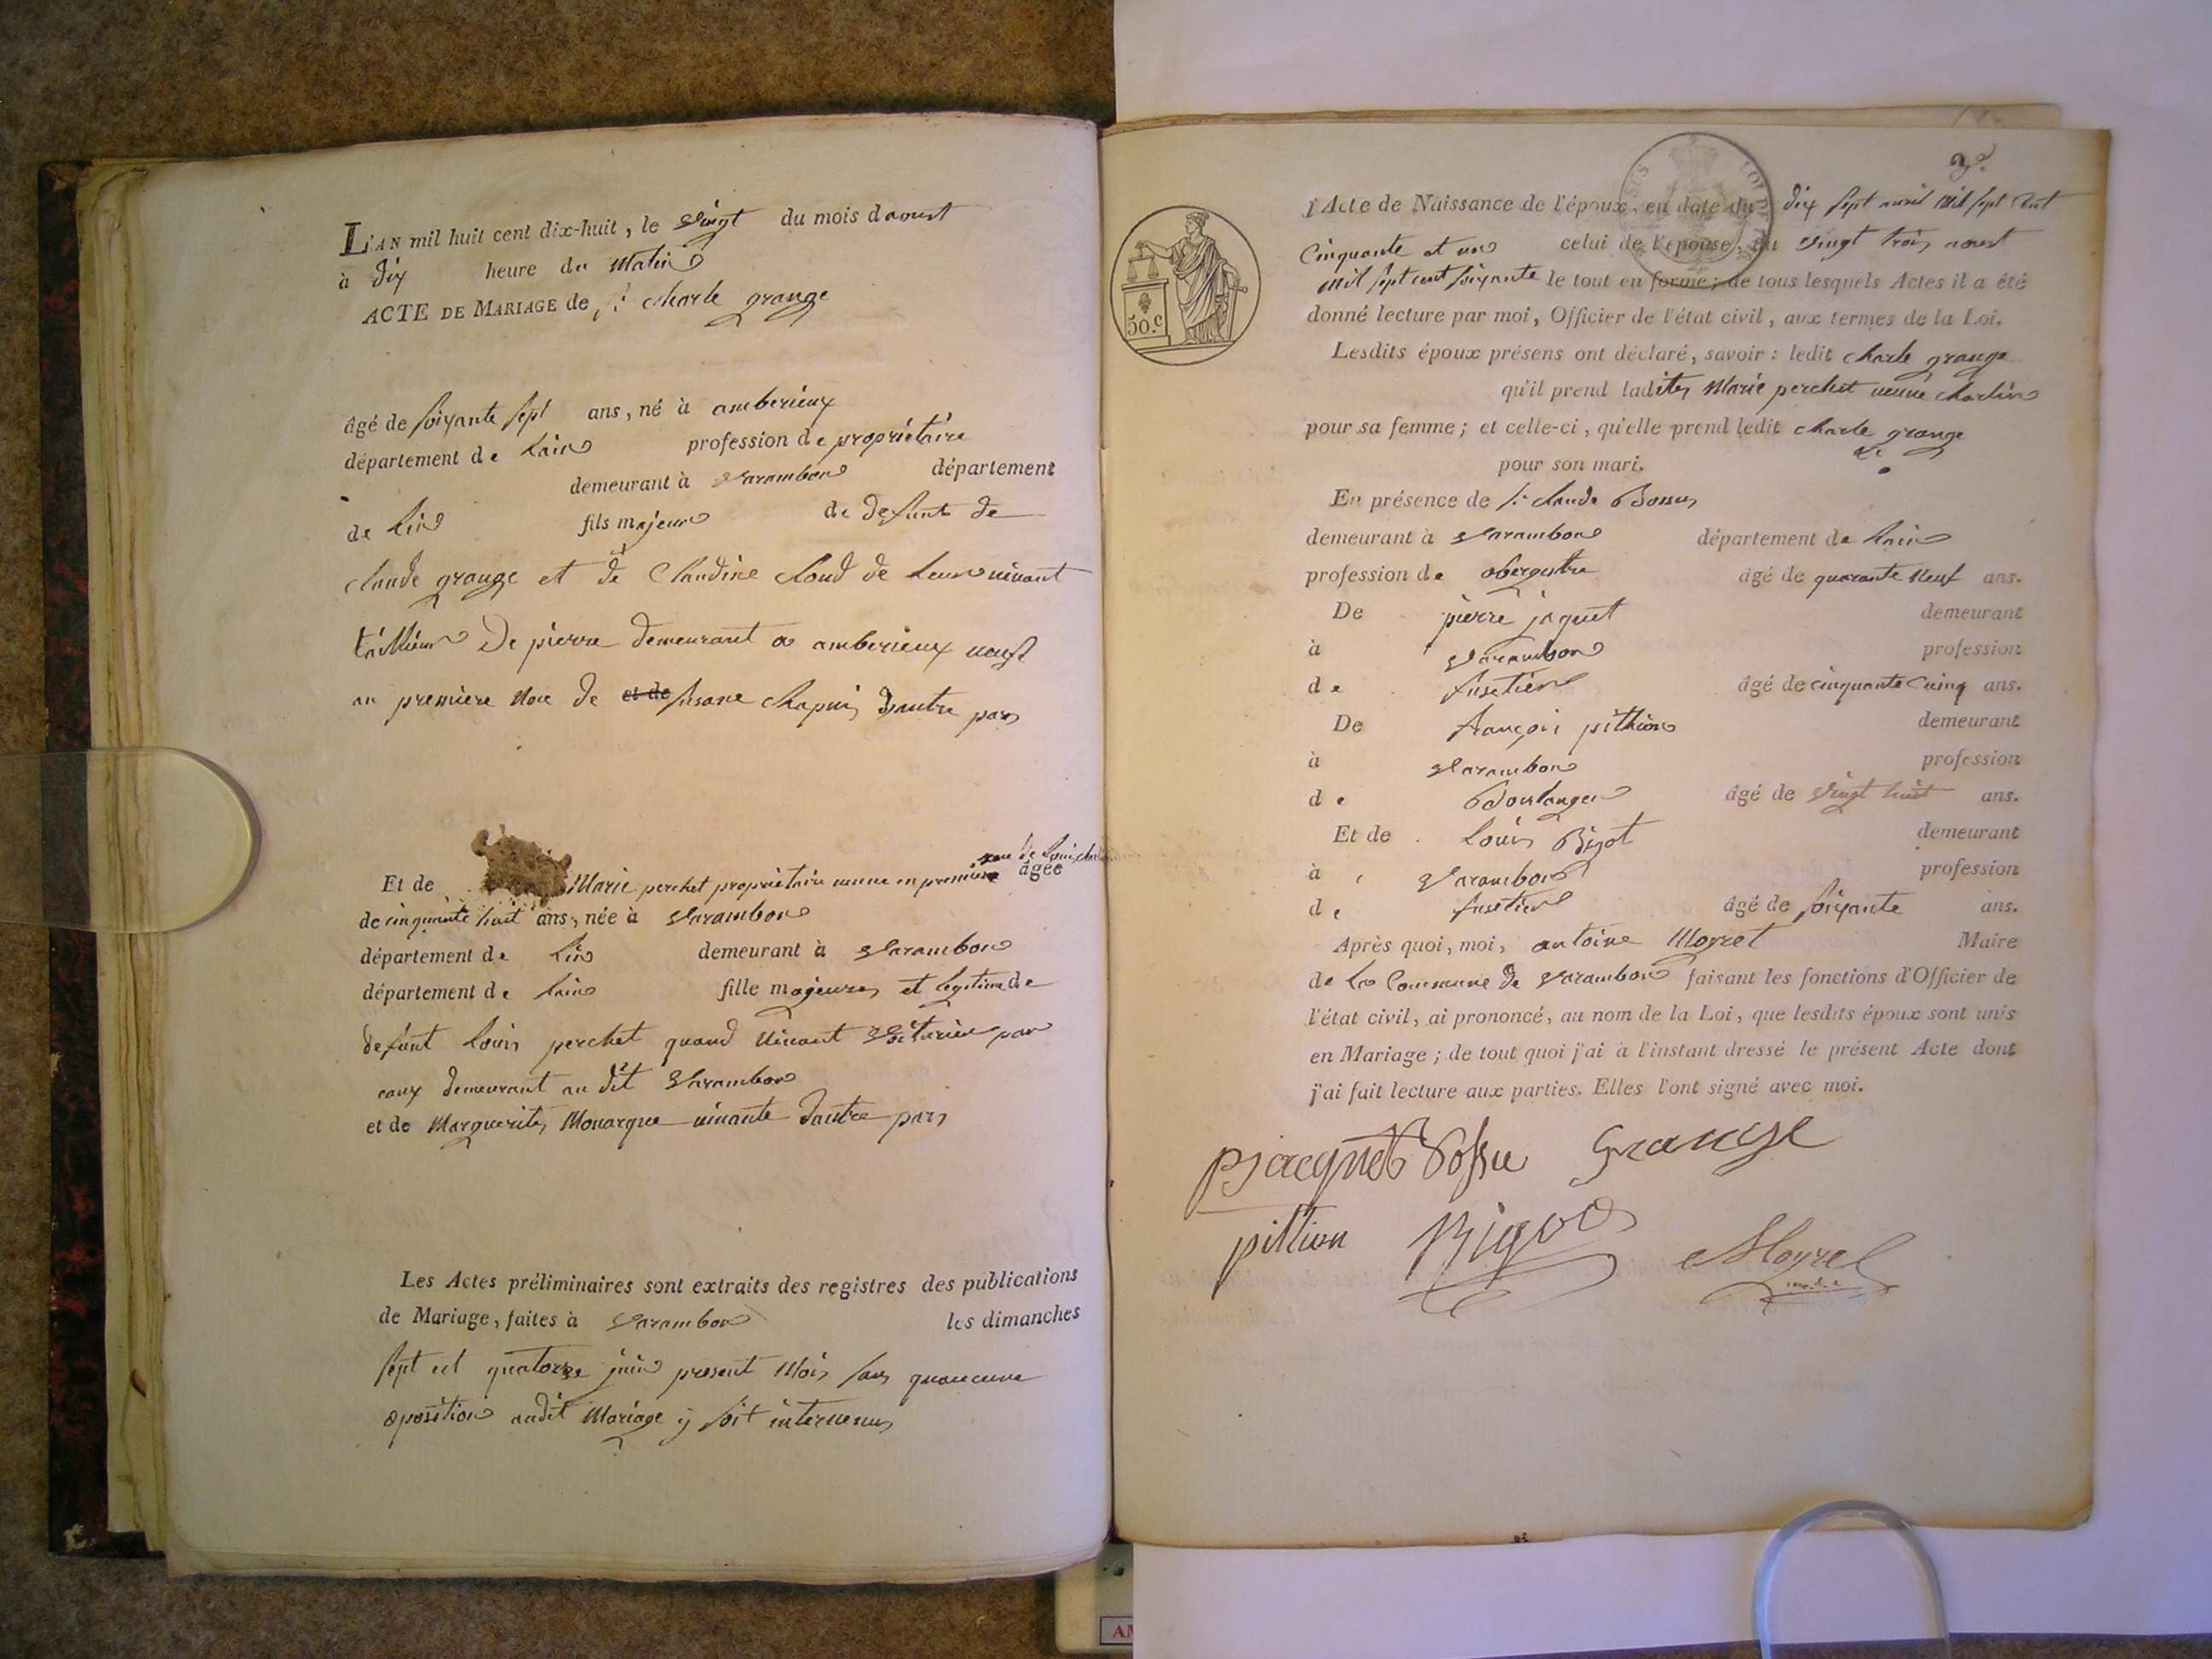 L'AN mil huit cent dix-huit, le vingt du mois daoust
à dix heure du Matin
ACTE DE MARIAGE de Sr charle grange
âgé de soixante sept ans, né à amberieux
département de Lain profession de propriétaire
demeurant à varambon département
de Lin fils majeur de defunt de
claude grange et de Claudine Cloud de leur vivant
tallieur De pierre demeurant a amberieux veuf
en premiere Noce de et de susane chapuis dautre part
noce de Louis
Et de Marie perchet propriétaire veuve en premiere âgée
de cinquante huit ans, née à varambon
département de Lin demeurant à varambon
département de Lain fille mageure et legitime de
defunt Louis perchet quand vivant
eaux demeurant au dit varambon
et de Marguerite Monarque vivante dautre part
Les Actes préliminaires sont extraits des registres des publications
de Mariage, faites à varambon les dimanches
sept et quatorze juin present Mois sans quaucune
oposition audit Mariage y soit intervenus
3e.
l'Acte de Naissance de l'époux, en date du dix sept avril Mil sept Cent
Cinquante et un celui de l'épouse, du vingt trois aoust
mil sept cent soixante le tout en forme; de tous lesquels Actes il a été
50.c
donné lecture par moi, Officier de l'état civil, aux termes de la Loi.
Lesdits époux présens ont déclaré, savoir: ledit charle grange
qu'il prend ladite Marie perchet veuve
pour sa femme; et celle-ci, qu'elle prend ledit charle grange
pour son mari.
En présence de Sr claude Bossus
demeurant à varambon département de Lain
profession de obergistre âgé de quarante Neuf ans.
De pierre jaquet demeurant
à varambon profession
de fusetier âgé de cinquante Cuinq ans.
De françois pithion demeurant
à varambon profession
de Boulanger âgé de vingt huit ans.
Et de Louis Bigot demeurant
à varambon profession
de fusetier âgé de soixante ans.
Après quoi, moi, antoine Moyret Maire
de La Commune de varambon faisant les fonctions d'Officier de
l'état civil, ai prononcé, au nom de la Loi, que lesdits époux sont unis
en Mariage; de tout quoi j'ai à l'instant dressé le présent Acte dont
j'ai fait lecture aux parties. Elles l'ont signé avec moi.
pjacquet Bossu Grange
pittion Bigot Moyret